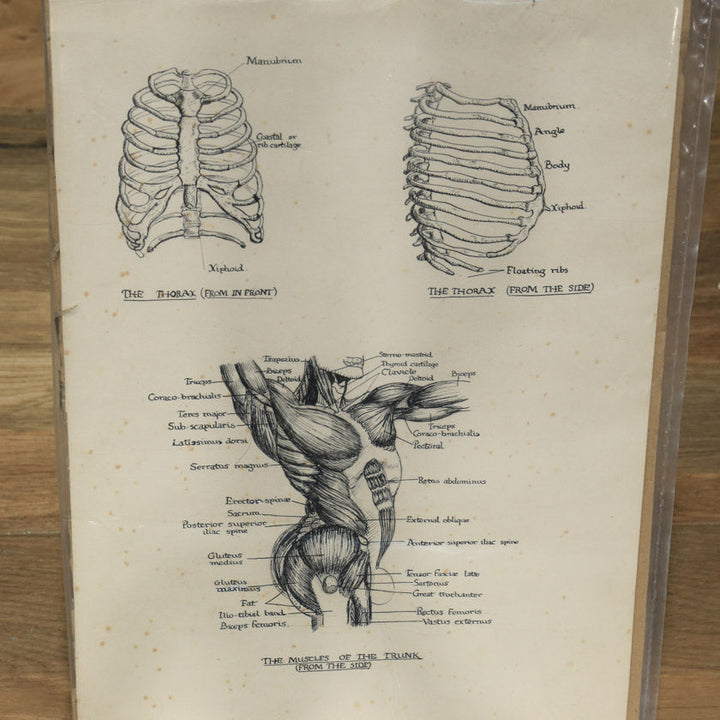 Manubrium
Coastal or
rib cartilage
Xiphoid
THE THORAX (FROM IN FRONT)
Manubrium
Angle
Body
Xiphoid
Floating ribs
THE THORAX (FROM THE SIDE)
Trapezius
Biceps
Deltoid
Triceps
Coraco-brachialis
Teres major
Sub-scapularis
Latissimus dorsi
Serratus magnus
Erector spinae
Sacrum
Posterior superior
iliac spine
Gluteus
medius
Gluteus
maximus
Fat
Ilio-tibial band
Biceps femoris
Sterno-mastoid
Thyroid cartilage
Clavicle
Deltoid
Biceps
Triceps
Coraco-brachialis
Pectoral
Rectus abdominus
External oblique
Anterior superior iliac spine
Tensor fasciae latae
Sartorius
Great trochanter
Rectus femoris
Vastus externus
THE MUSCLES OF THE TRUNK
(FROM THE SIDE)